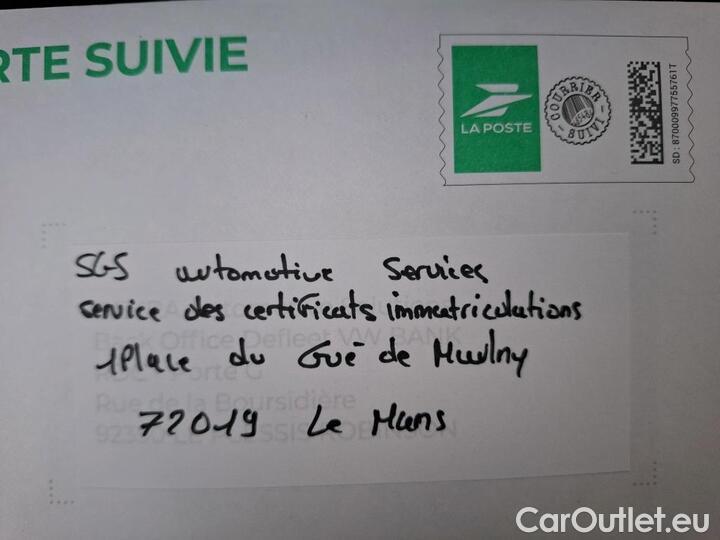 RTE SUIVIE
LA POSTE
COURRIER SUIVI
SD: 87000997755761T
SGS automotive Services
service des certificats immatriculations
1 Place du Gué de Maulny
72019 Le Mans
Back Office Defleet VW BANK
Porte G
Rue de la Boursidière
PLESSIS ROBINSON
CarOutlet.eu